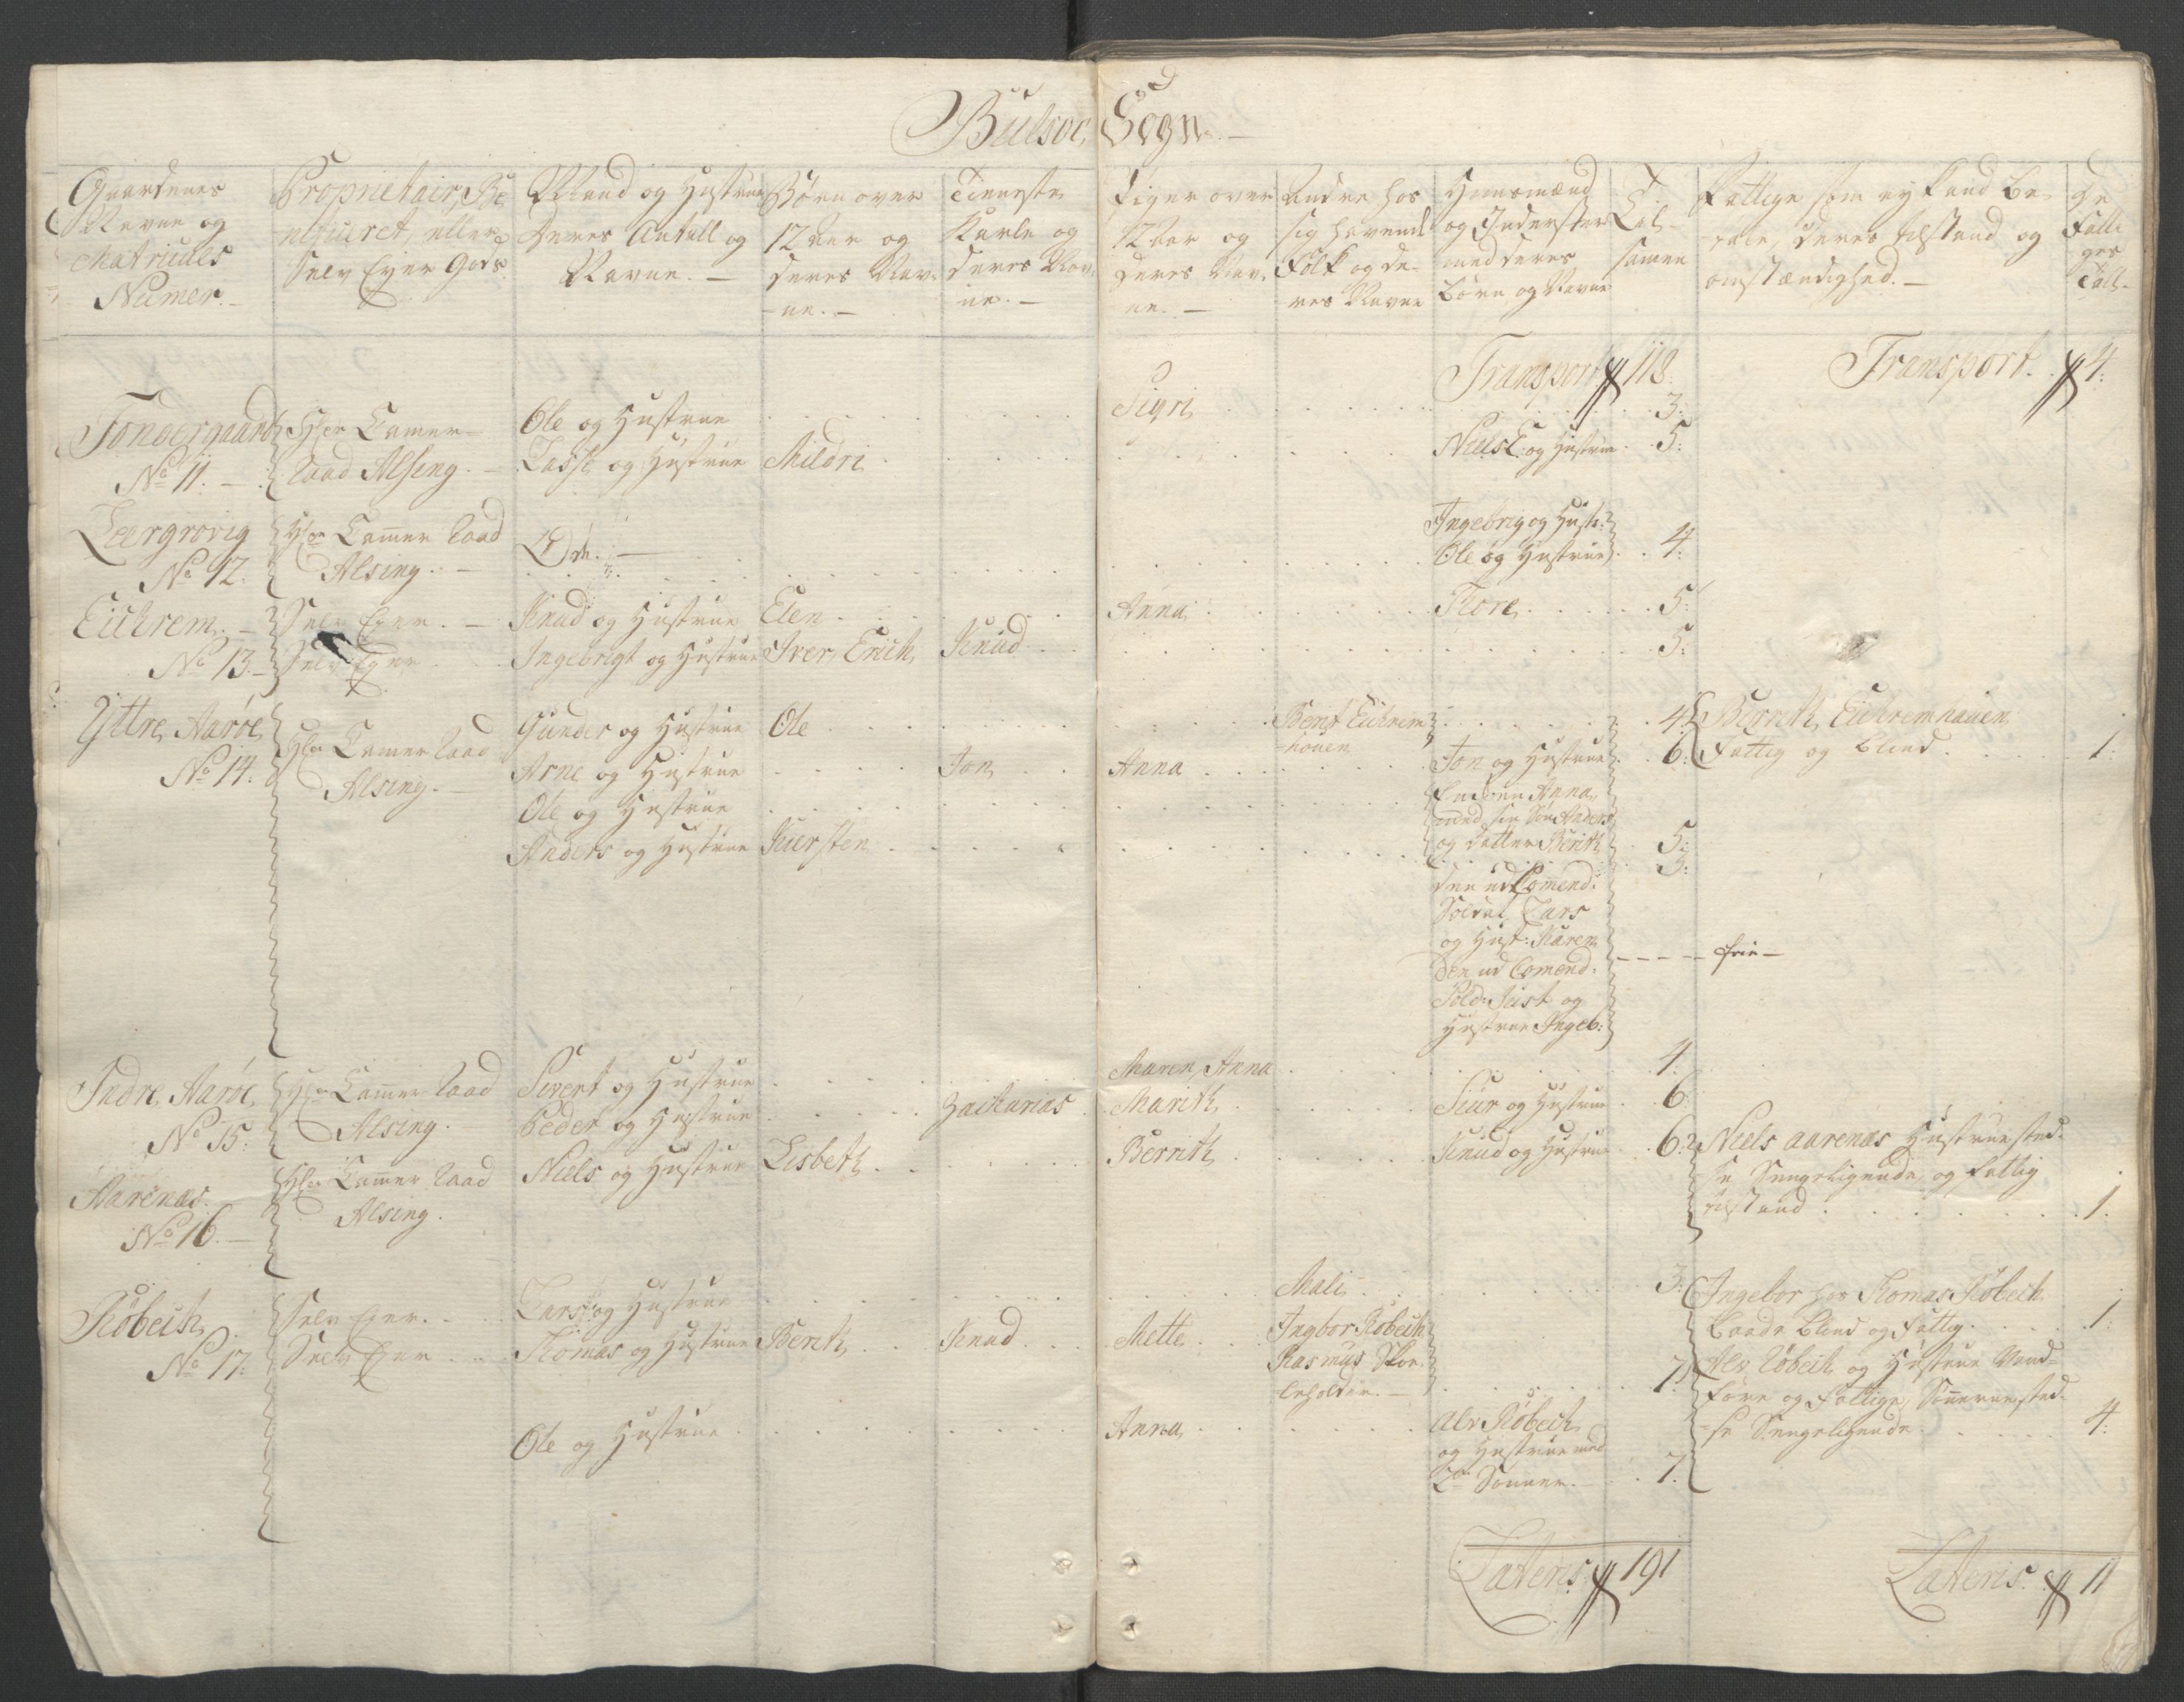 Bulsoe Sogn.
Gaardenes
Navne og
Matriculs
Numer.
Proprietair, Be-
neficeret, eller
Selv Eyer Gods
Mand og Hustrue
deres Antall og
Navne.
Børn over
12 Aar og
deres Nav-
ne.
Tieneste
Karle og
deres Nav-
ne.
Piger over
12 Aar og
deres Nav-
ne.
Andre hos
sig havende
Folk og de-
res Navne
Huusmænd
og Inderster
med deres
Børn og Navne
Tal-
samen
Fattige som ey kand be-
tale, deres tilstand og
omstændighed.
De
Fatti
ges
Tall.
Transport 118.
Transport. 4.
Tøndergaard
No 11.
Hr Camer-
Raad Alsing.
Ole og Hustrue
Lasse og Hustrue
Mildri
Sigri
3.
Niels og Hustrue 5.
Leergrovig
No 12.
Hr Camer Raad
Alsing.
Øde.
Ingebrig og Hust:
Ole og Hustrue 4.
Eichrem
No 13.
Selv Eyer.
Selv Eyer
Knud og Hustrue
Ingebrigt og Hustrue
Elen
Iver, Erich
Knud
Anna
Tore 5.
5.
Yttre Aarøe
No 14.
Hr Camer Raad
Alsing.
Gunder og Hustrue
Arne og Hustrue
Ole og Hustrue
Anders og Hustrue
Ole
Kiersten
Jon
Anna
Berit Eichrem-
houen
4.
Jon og Hustrue 6.
Enken Anna
med sin Søn Anders
og datter Berith 5.
3.
den ud Comend:
Soldat Lars
og Hust: Karen
Den ud Comend:
Sold: Siust og
Hustrue Ingeb:
frie
Berrith Eichremhauen
Fattig og blind. 1.
Indre Aarøe
No 15.
Hr Camer Raad
Alsing.
Sivert og Hustrue
Peder og Hustrue
Zacharias
Maren, Anna
Marith
4.
Siur og Hustrue 6
Aarenæs
No 16.
Hr Camer Raad
Alsing.
Niels og Hustrue
Lisbeth
Berrith
Knud og Hustrue 6.
Niels Aarenæs Hustrue sted-
se Sengeligende og fattig
tilstand 1.
Røbech
No 17.
Selv Eyer.
Selv Eyer
Lars og Hustrue
Tomas og Hustrue
Ole og Hustrue
Berith
Knud
Mette
Anna
Mali
Ingbor Røbech
Rasmus Skoe-
leholder.
3.
7.
Alv Røbech
og Hustrue med
2de Sønner. 7.
Ingebor hos Tomas Røbech
baade blind og Fattig. 1.
Alv Røbech og Hustrue Vand-
føre og Fattige, Sønnerne sted-
se Sengeligende. 4.
Lateris 191
Lateris 11